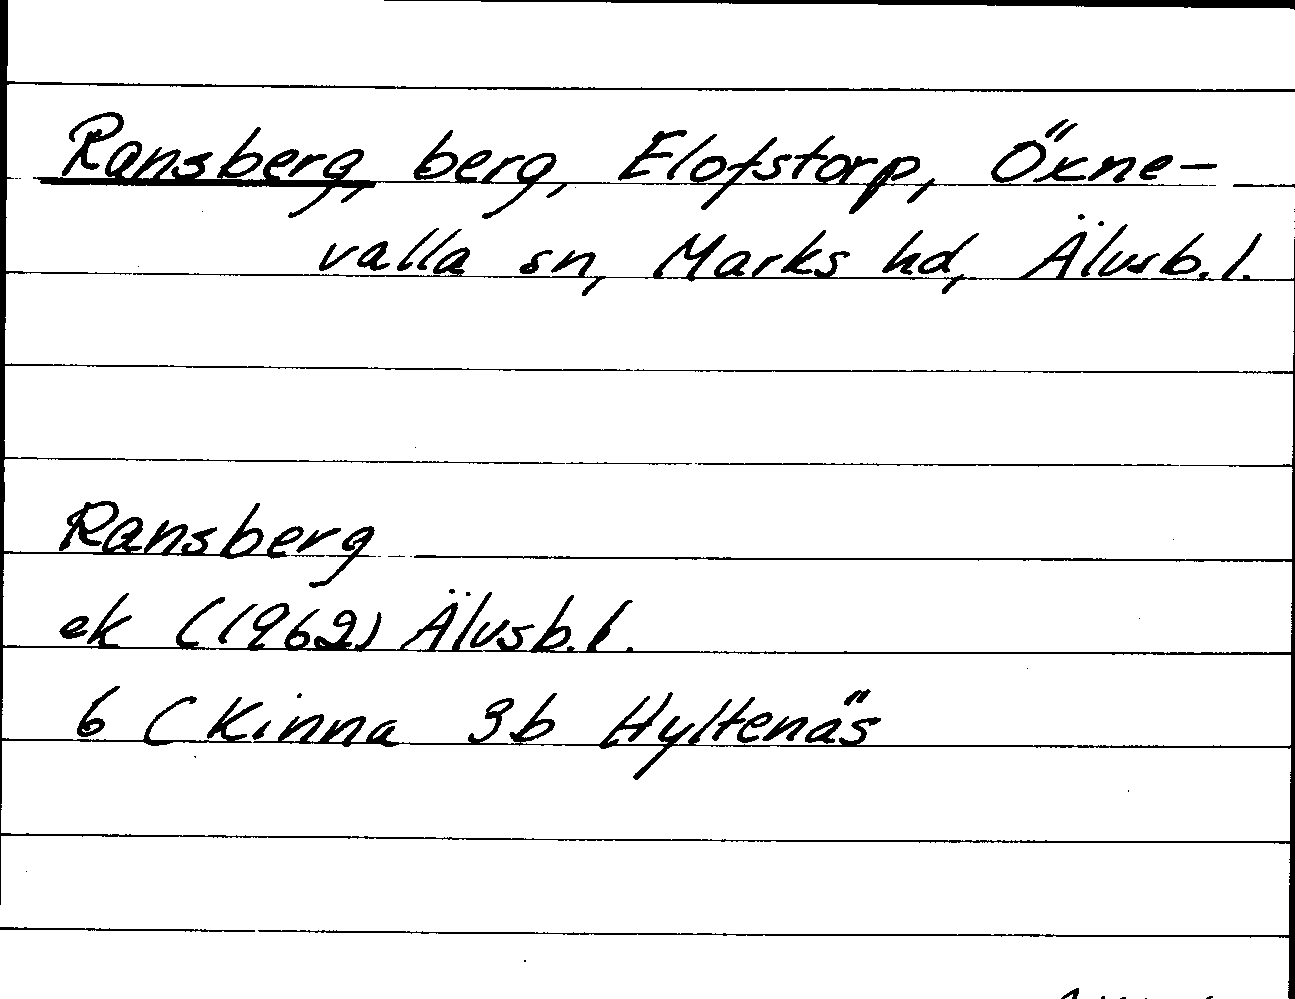 Ransberg, berg, Elofstorp, Öxne-
valla sn, Marks hd, Älvsb.l.
Ransberg
ek (1962) Älvsb.l.
6 C Kinna 3b Hyltenäs